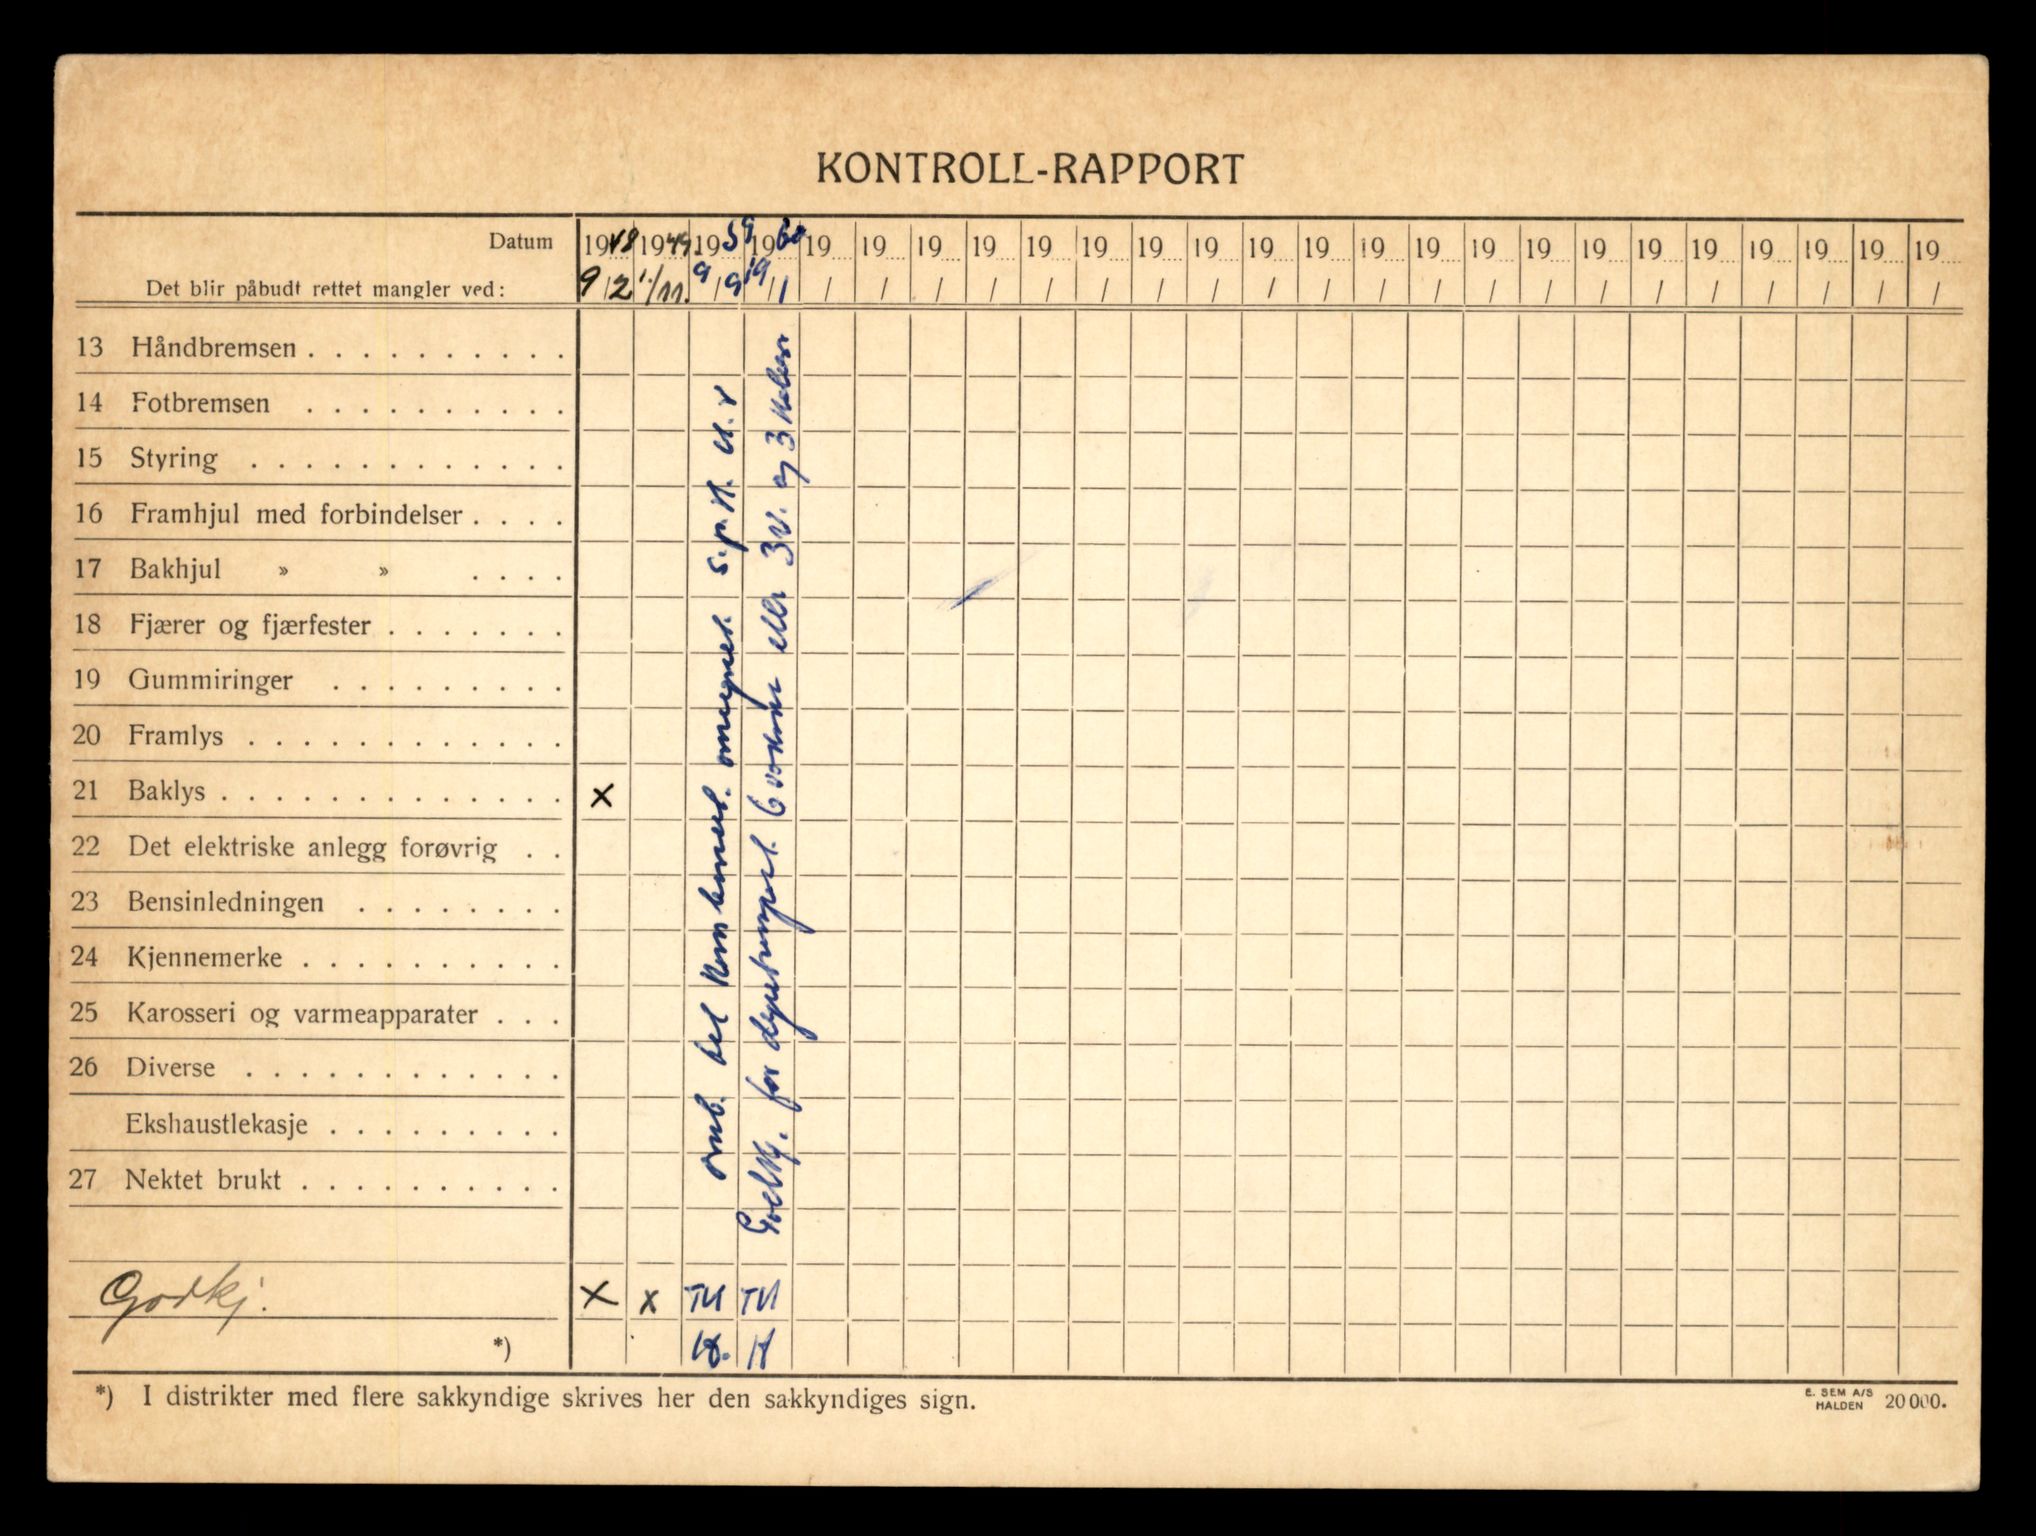 KONTROLL-RAPPORT
Datum 1948 1949. 1959 1960 19 19 19 19 19 19 19 19 19 19 19 19 19 19 19 19 19 19 19 19 19
Det blir påbudt rettet mangler ved: 9/2 1./11. 9/9 19/1 / / / / / / / / / / / / / / / / / / / / /
13 Håndbremsen . . . . . . . . . .
14 Fotbremsen . . . . . . . . . .
15 Styring . . . . . . . . . . . .
16 Framhjul med forbindelser . . . .
17 Bakhjul » » . . . .
18 Fjærer og fjærfester . . . . . . .
19 Gummiringer . . . . . . . . .
20 Framlys . . . . . . . . . . . .
21 Baklys . . . . . . . . . . . . . x
22 Det elektriske anlegg forøvrig . .
23 Bensinledningen . . . . . . . .
24 Kjennemerke . . . . . . . . . .
25 Karosseri og varmeapparater . . .
26 Diverse . . . . . . . . . . . .
Ekshaustlekasje . . . . . . . . .
27 Nektet brukt . . . . . . . . . .
omb. til kombinert.
Godkj. for dyretransport. 6 voksne eller 3 v. og 3
Godkj. x x TH TH
*) H
*) I distrikter med flere sakkyndige skrives her den sakkyndiges sign.
E. SEM A/S
HALDEN 20 000.